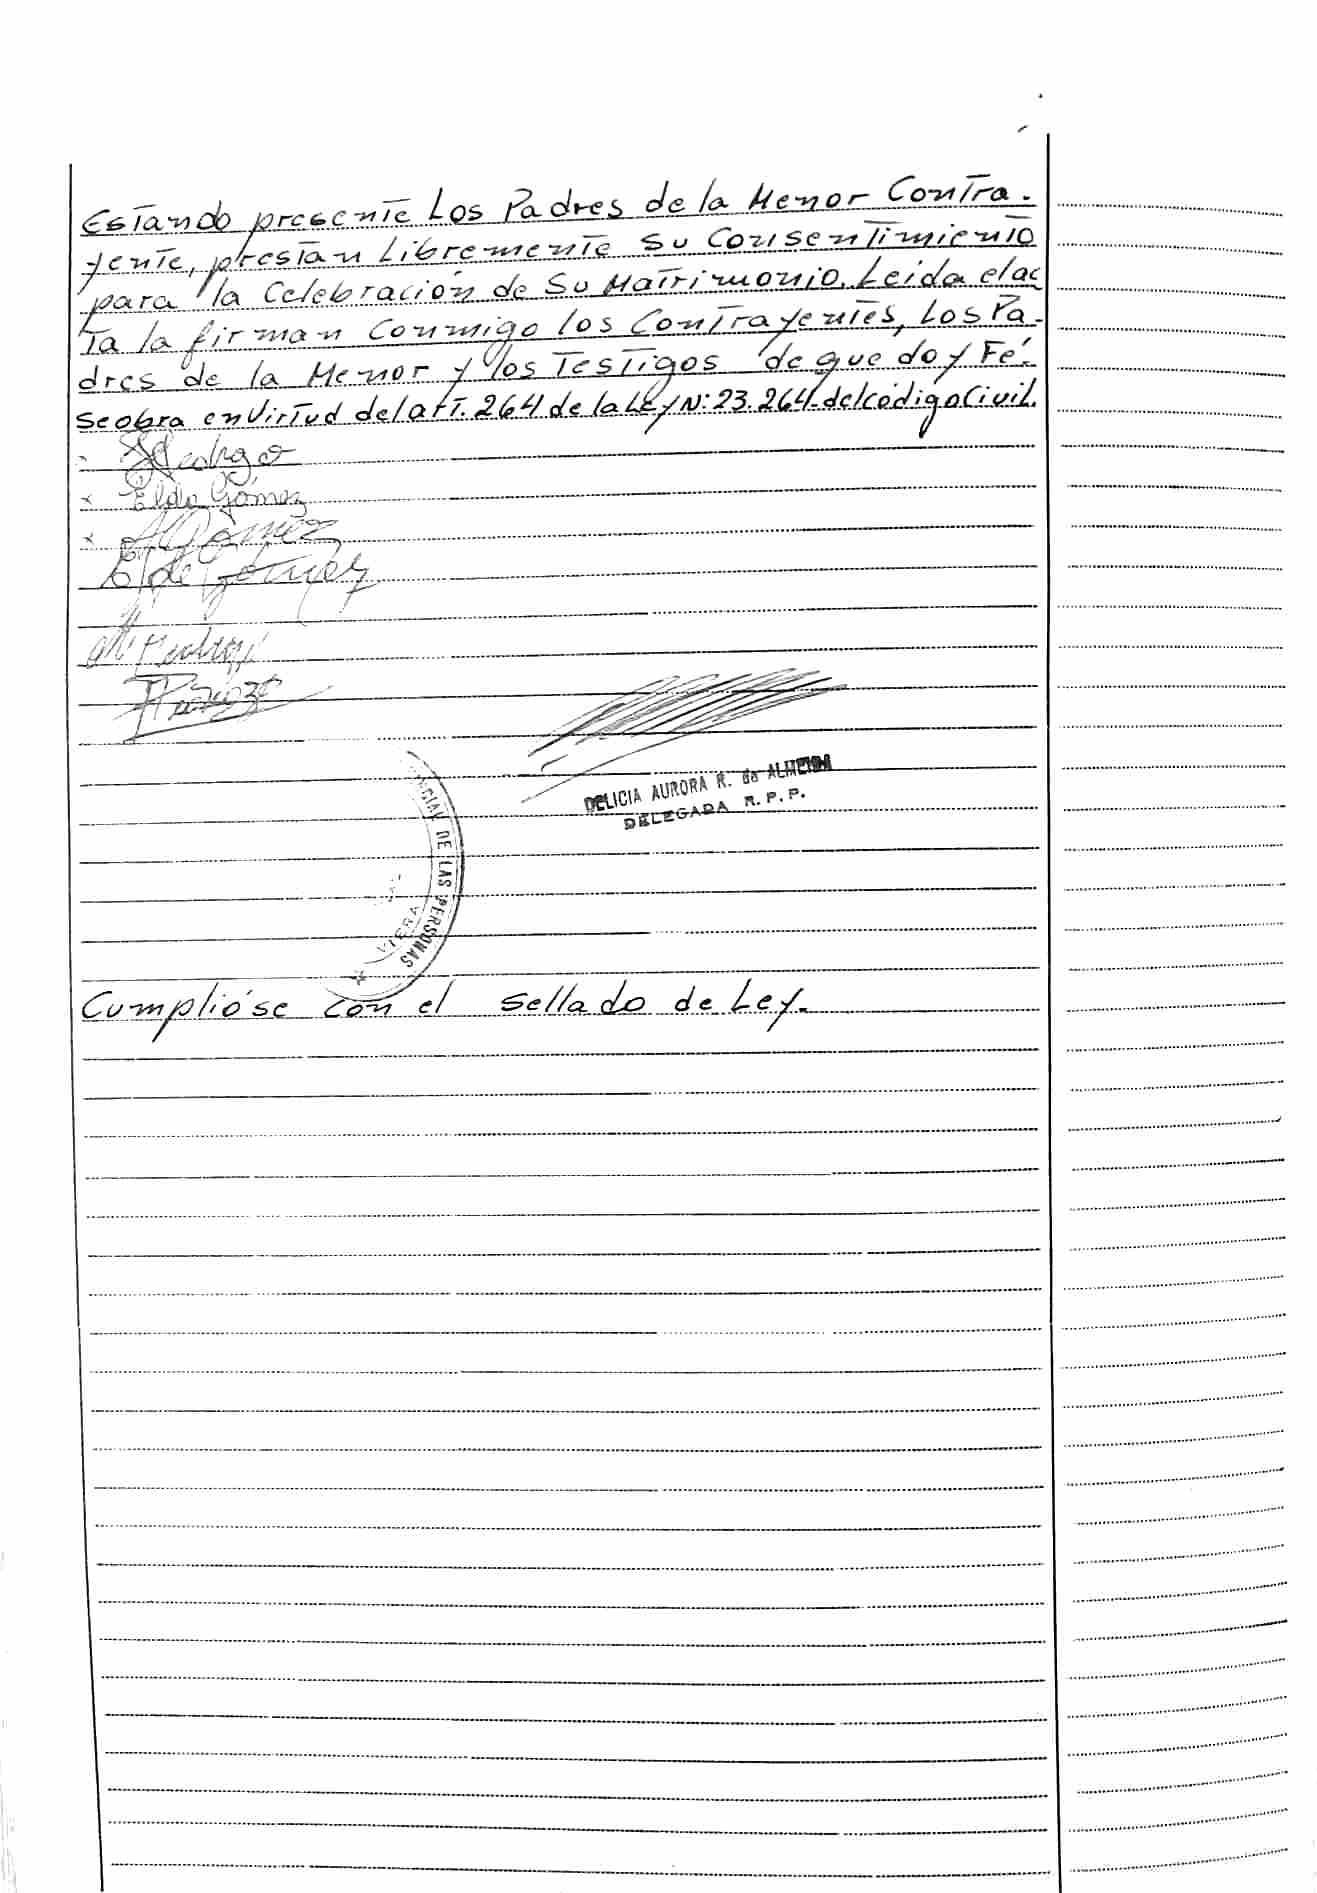 Estando presente Los Padres de la Menor Contra-
yente, prestan Libremente su Consentimiento
para la Celebración de Su Matrimonio. Leida el ac
ta la firman conmigo los Contrayentes, Los Pa-
dres de la Menor y los Testigos de que doy Fé.-
Se obra en Virtud del art. 264 de la Ley N: 23.264 del código Civil.
x Elda Gómez
x Gómez
DELICIA AURORA R. de ALMEIDA
DELEGADA R. P. P.
DE LAS PERSONAS
VIERA
Cumplióse con el sellado de Ley.